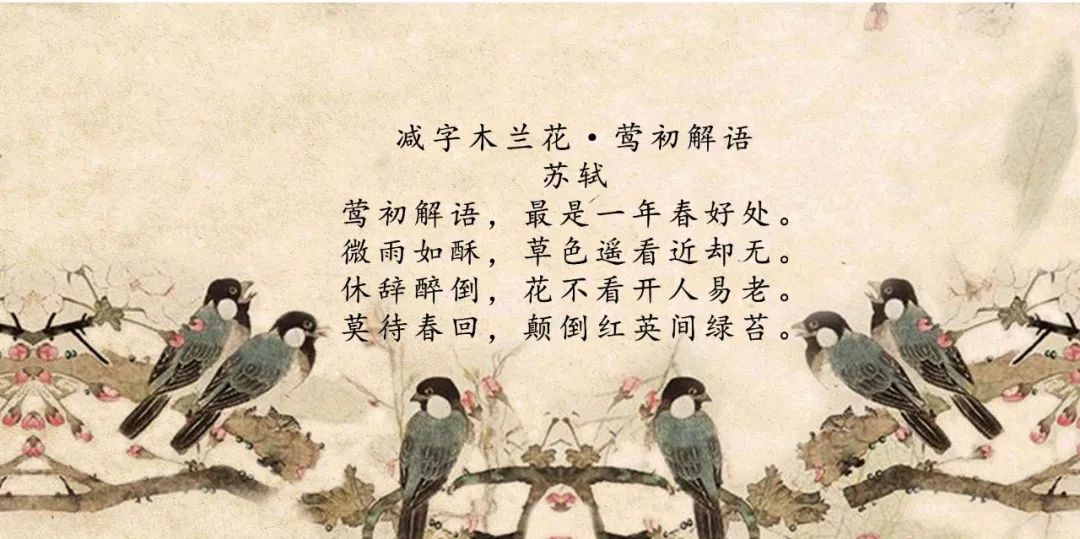 减字木兰花·莺初解语
苏轼
莺初解语，最是一年春好处。
微雨如酥，草色遥看近却无。
休辞醉倒，花不看开人易老。
莫待春回，颠倒红英间绿苔。